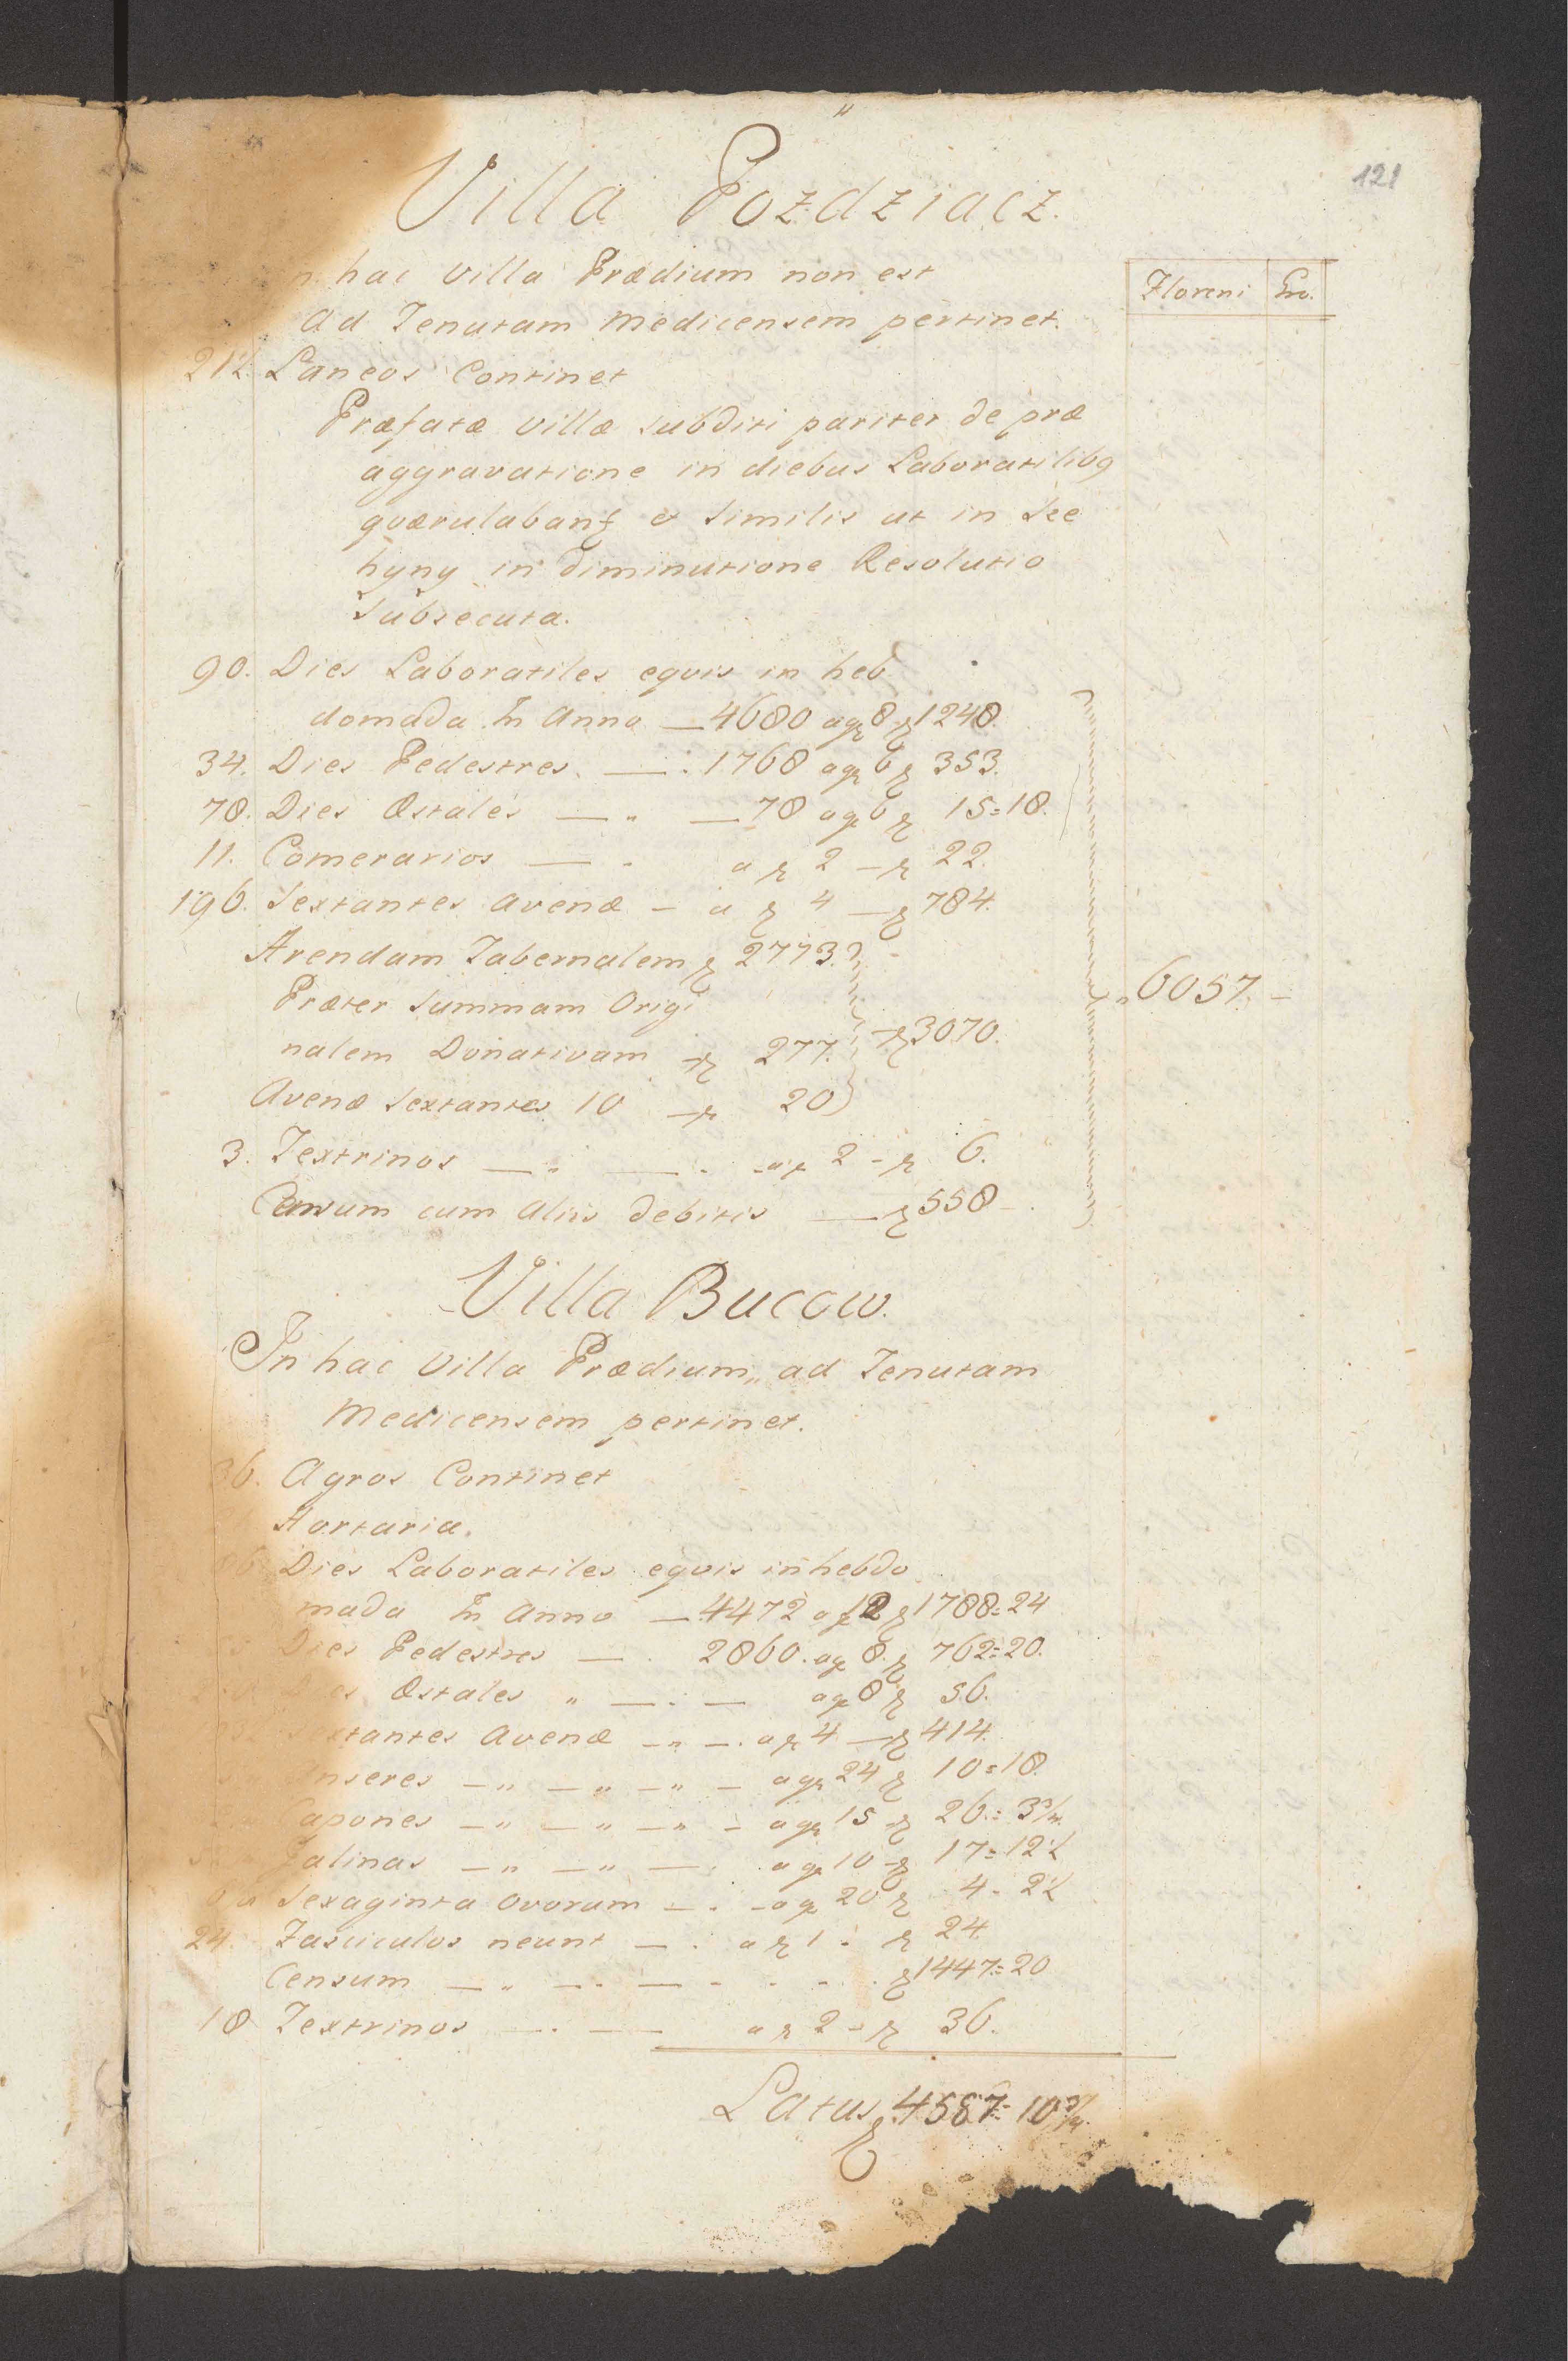 121
Villa Pozdziacz.
n hac villa Prædium non est
Floreni Gro.
Ad Tenutam Medicensem pertinet.
21½ Laneos Continet
Præfatæ villæ subditi pariter de præ
aggravatione in diebus Laboratilibꝯ
qværulabantꝝ et similis ut in Sze
hyny in diminutione Resolutio
Subsecuta.
90. Dies Laboratiles eqvis in heb
domada In Anno — 4680 a gr 8 fl 1248.
34. Dies Pedestres. — 1768 a gr 6 fl 353.
78. Dies Æstales — " — 78 a gr 6 fl 15=18.
11. Comerarios — - a fl 2 – fl 22.
196. Sextantes avenæ – a fl 4 – fl 784.
Arendam Tabernalem fl 2773.
Præter summam Origi
6057. –
nalem Donativam fl 277. fl 3070.
Avenæ sextantes 10 – fl 20
3. Textrinos — " — - a fl 2 – fl 6.
Censum cum aliis debitis — fl 558 –
Villa Bucow.
In hac villa Prædium,, ad Tenutam
Medicensem pertinet.
36. Agros Continet
Hortaria.
Dies Laboratiles eqvis in hebdo
mada In Anno — 4472 a gr 12 fl 1788=24
Dies Pedestres — . 2860. a gr 8. fl 762=20.
Æstales " — . — a gr 8 fl 56.
xtantes Avenæ – " – . a fl 4 – fl 414.
nseres – " – " – " – a gr 24 fl 10=18.
apones – " – " – " – a gr 15 fl 26.=3¾.
Galinas – " – " – . a gr 10 fl 17=12½
Sexaginta Ovorum – . – a gr 20 fl 4 - 2½
24. Fasciculos neunt – . a fl 1 - fl 24.
Censum – " – . – - - . fl 1447=20
18 Textrinos – . — a fl 2 – fl 36.
Latus fl 4587=10¾.